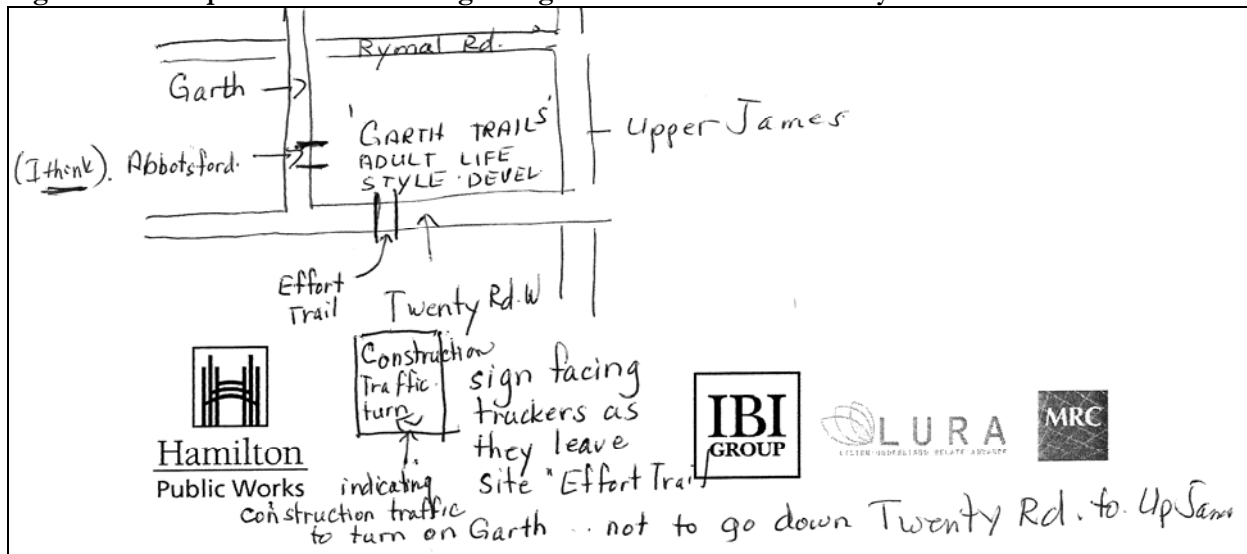 Rymal Rd.
Garth
'GARTH TRAILS'
ADULT LIFE
STYLE DEVEL.
Upper James
(I think). Abbotsford.
Effort
Trail
Twenty Rd. W
Construction
Traffic
turn
sign facing
truckers as
they leave
site "Effort Trail
indicating
construction traffic
to turn on Garth .. not to go down Twenty Rd. to Up James
Hamilton
Public Works
IBI
GROUP
LURA
MRC